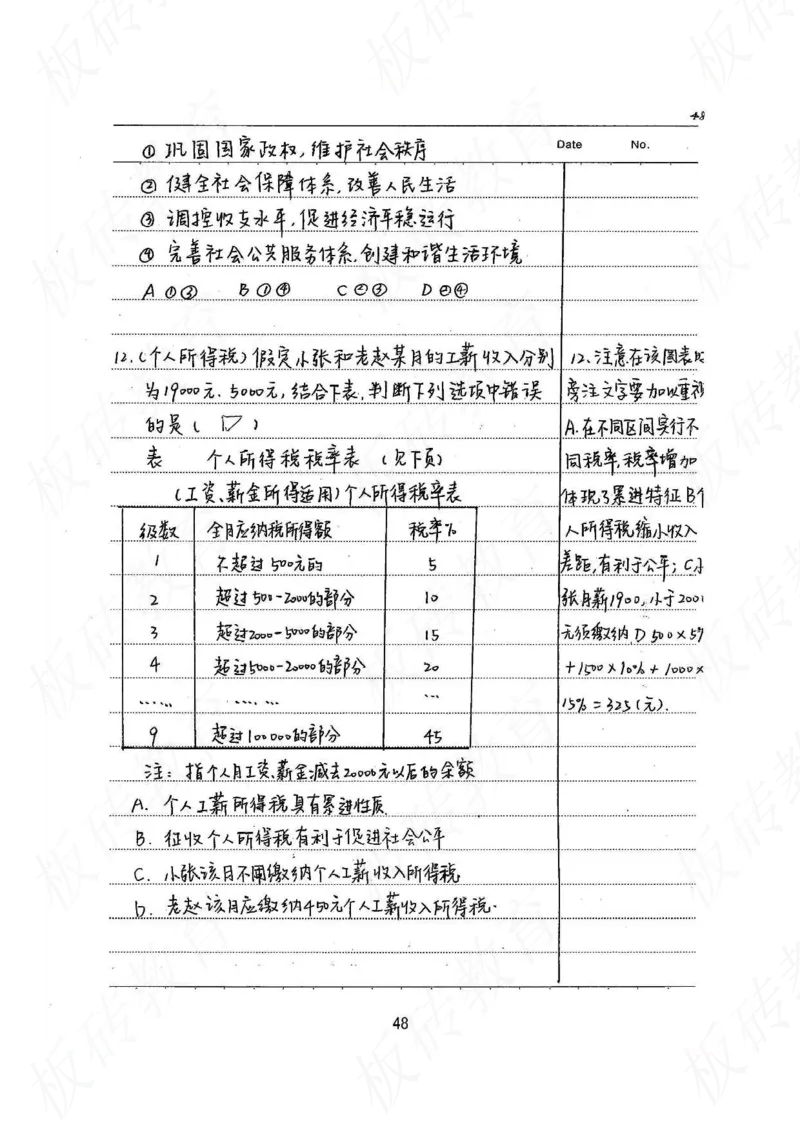 48
Date No.
① 巩固国家政权,维护社会秩序
② 健全社会保障体系,改善人民生活
③ 调控收支水平,促进经济平稳运行
④ 完善社会公共服务体系,创建和谐生活环境
A ①③ B ①④ C ②③ D ②④
12.(个人所得税)假定小张和老赵某月的工薪收入分别
为19000元.5000元,结合下表,判断下列选项中错误
的是( D )
表 个人所得税税率表 (见下页)
(工资、薪金所得适用)个人所得税率表
级数 全月应纳税所得额 税率%
1 不超过500元的 5
2 超过500-2000的部分 10
3 超过2000-5000的部分 15
4 超过5000-20000的部分 20
…… …… …
9 超过100000的部分 45
注:指个人月工资、薪金减去20000元以后的余额
A. 个人工薪所得税具有累进性质
B. 征收个人所得税有利于促进社会公平
C. 小张该日不用缴纳个人工薪收入所得税
D. 老赵该月应缴纳450元个人工薪收入所得税.
12、注意在该图表以
旁注文字要加以重视
A.在不同区间实行不
同税率,税率增加
体现了累进特征B个
人所得税缩小收入
差距,有利于公平;C小
张月薪1900,小于2001
元须缴纳D 500×5%
+1500×10%+1000×
15%=325(元).
48
板砖教育